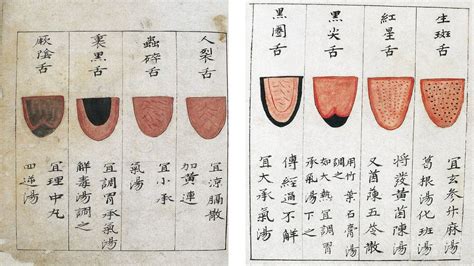 生斑舌
宜玄参升麻湯
葛根湯化斑湯
紅星舌
將發黄茵陳湯
又茵蔯五苓散
黑尖舌
用竹葉石膏湯
調之
如大熱宜調胃
承氣湯下之
黑圈舌
傳經過不解
宜大承氣湯
人裂舌
宜涼膈散
加黄連
蟲碎舌
宜小承
氣湯
裏黑舌
宜調胃承氣湯
解毒湯調之
厥陰舌
宜理中丸
四逆湯